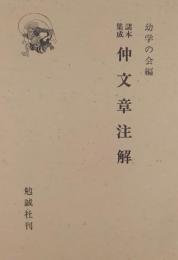 幼学の会編
諸本
集成
仲文章注解
勉誠社刊